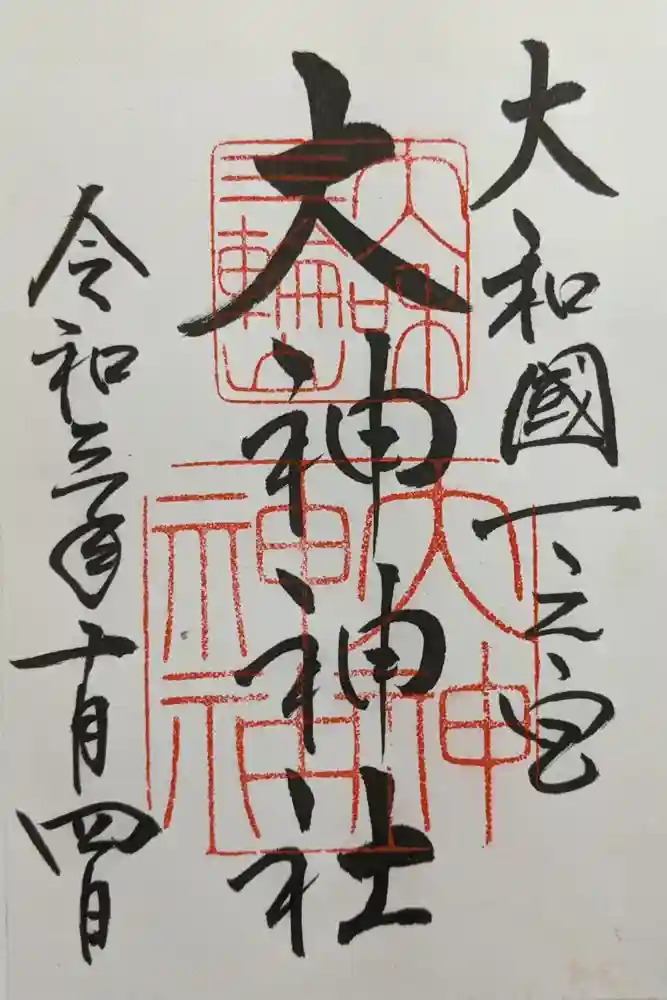 大和國一之宮
大神神社
令和三年十月四日
大和
三輪山
大神
神社